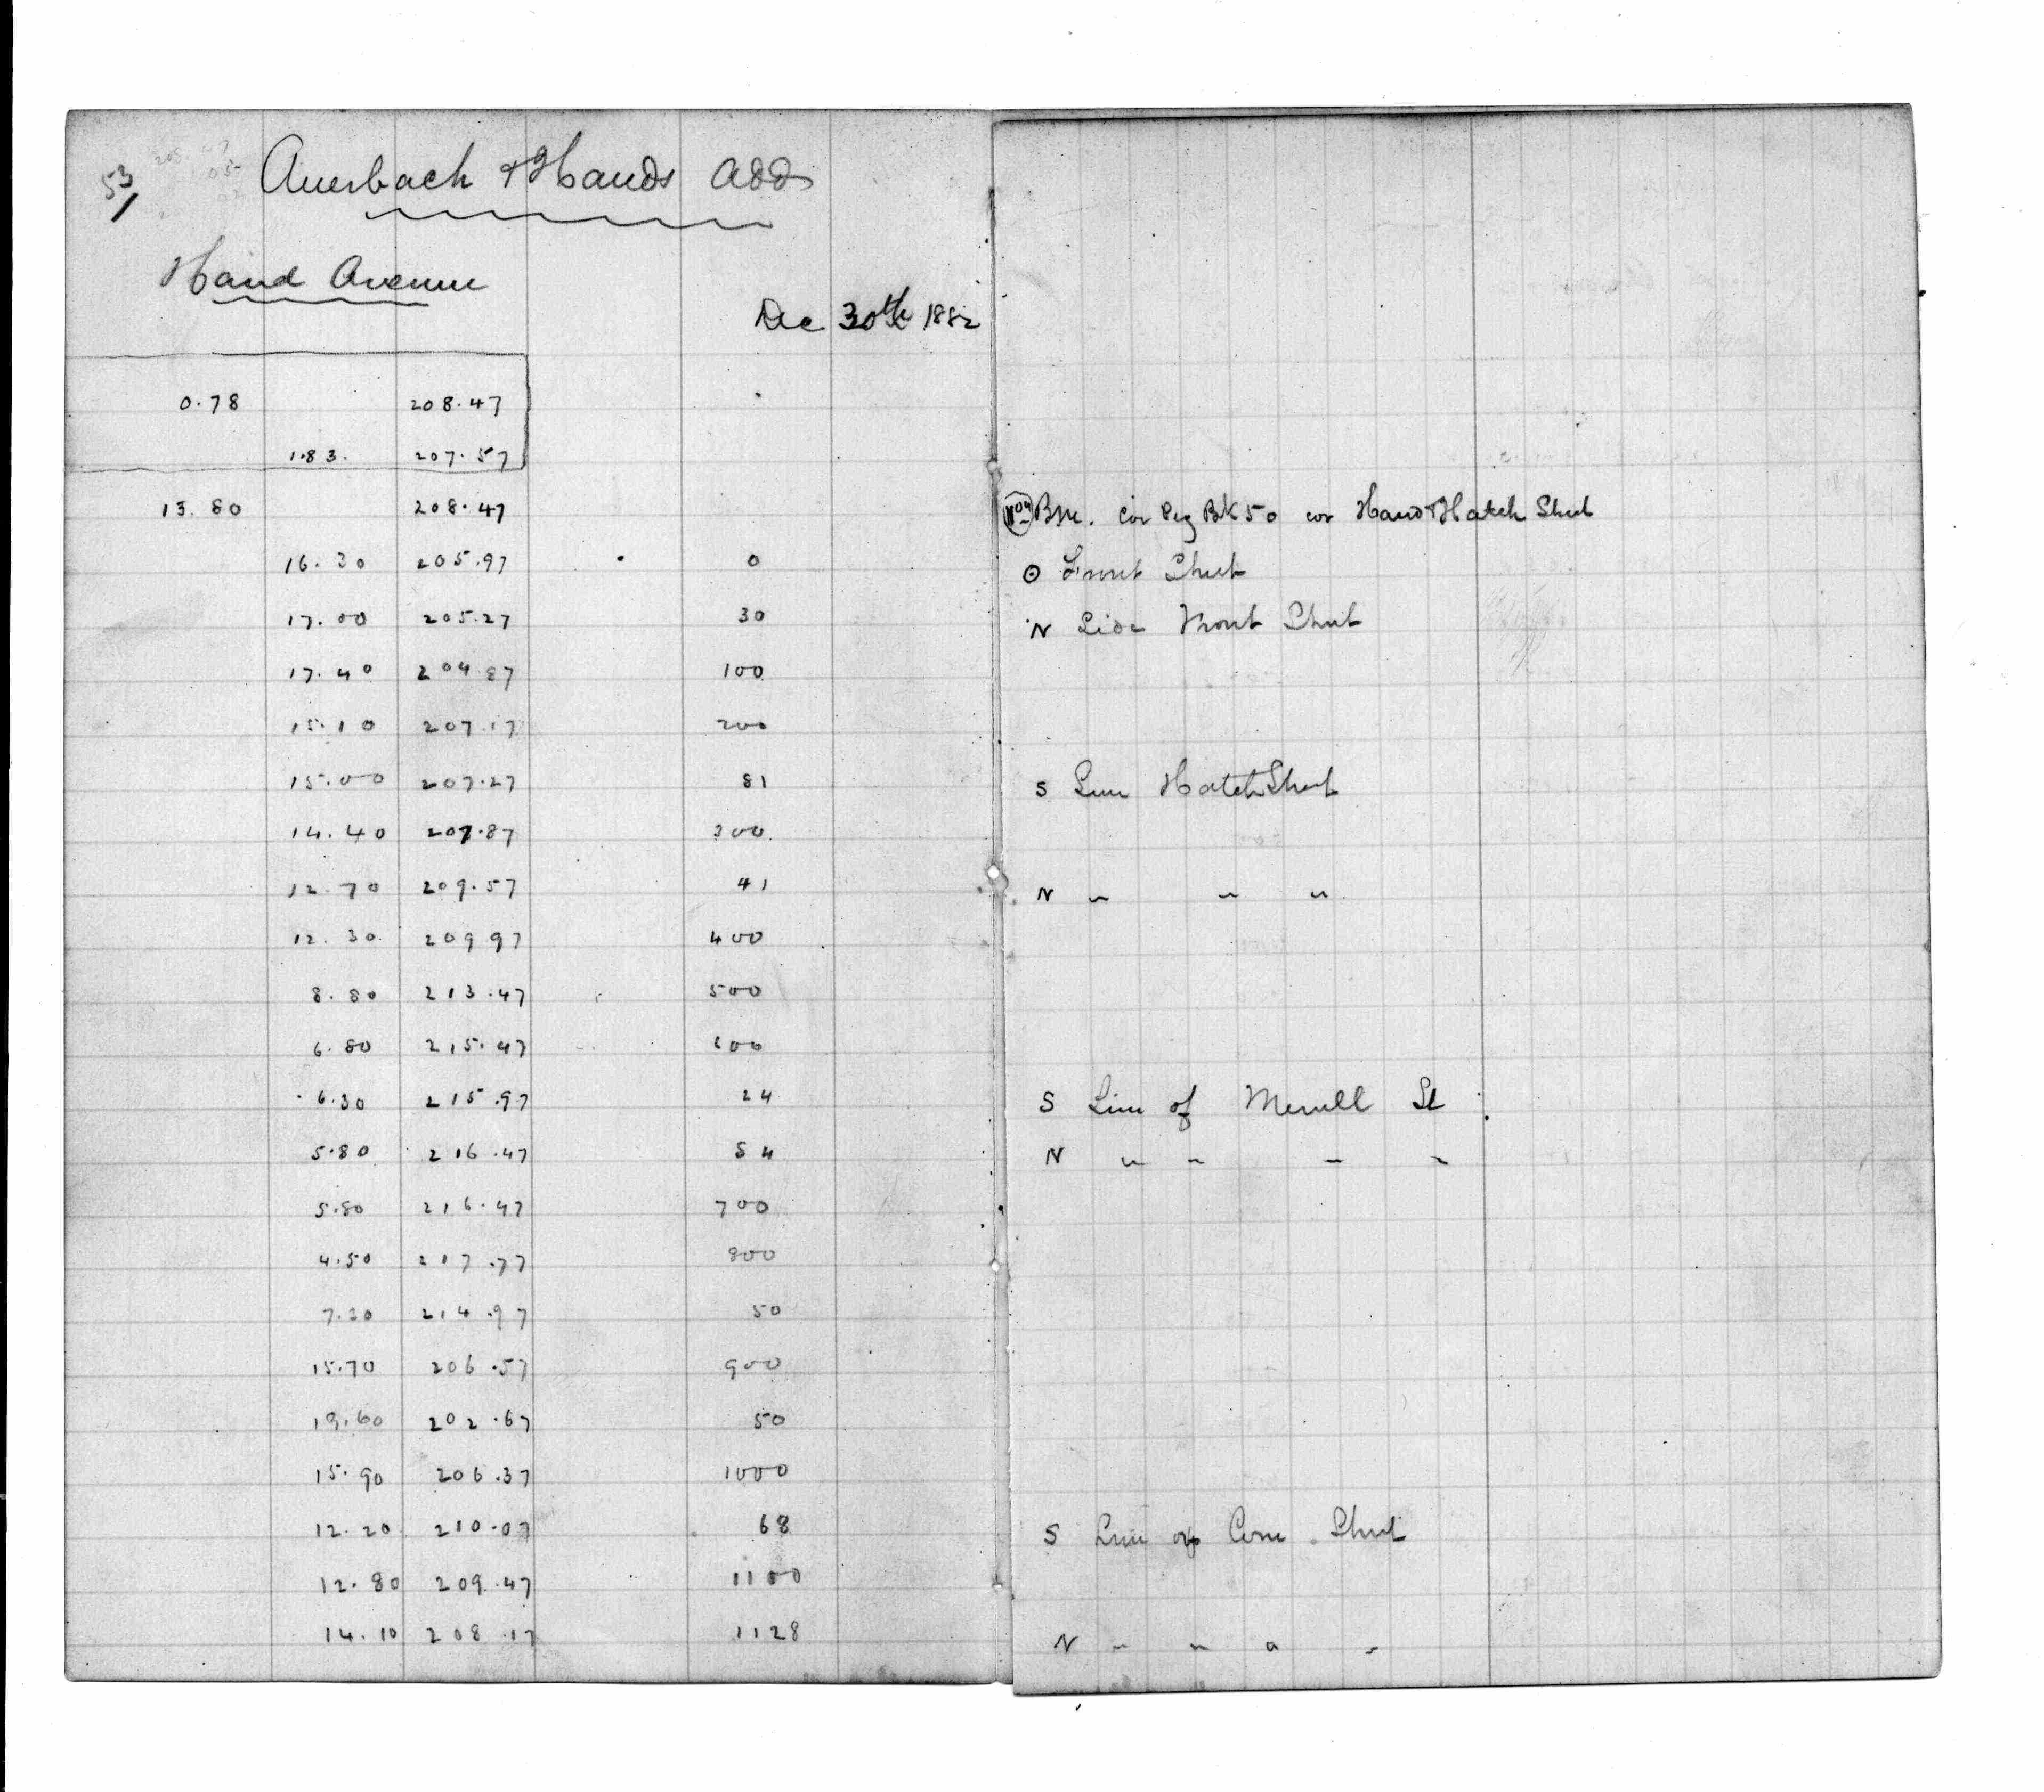 53/
Auerbach & Hands Add
Hand Avenue
Dec 30th 1882
0.78 208.47
1.83. 207.57
13.80 208.47 B.M. Cor Peg Bk 50 cor Hand & Hatch Street
16.30 205.97 0 ⊙ Front Street
17.00 205.27 30 N Side Front Street
17.40 204.87 100
15.10 207.17 200
15.00 207.27 81 S Line Hatch Street
14.40 207.87 300
12.70 209.57 41 N " " "
12.30 209.97 400
8.80 213.47 500
6.80 215.47 600
6.30 215.97 24 S Line of Merrill St
5.80 216.47 54 N " " " "
5.80 216.47 700
4.50 217.77 800
7.30 214.97 50
15.70 206.57 900
19.60 202.67 50
15.90 206.37 1000
12.20 210.07 68 S Line of Com Street
12.80 209.47 1100
14.10 208.17 1128 N " " " "